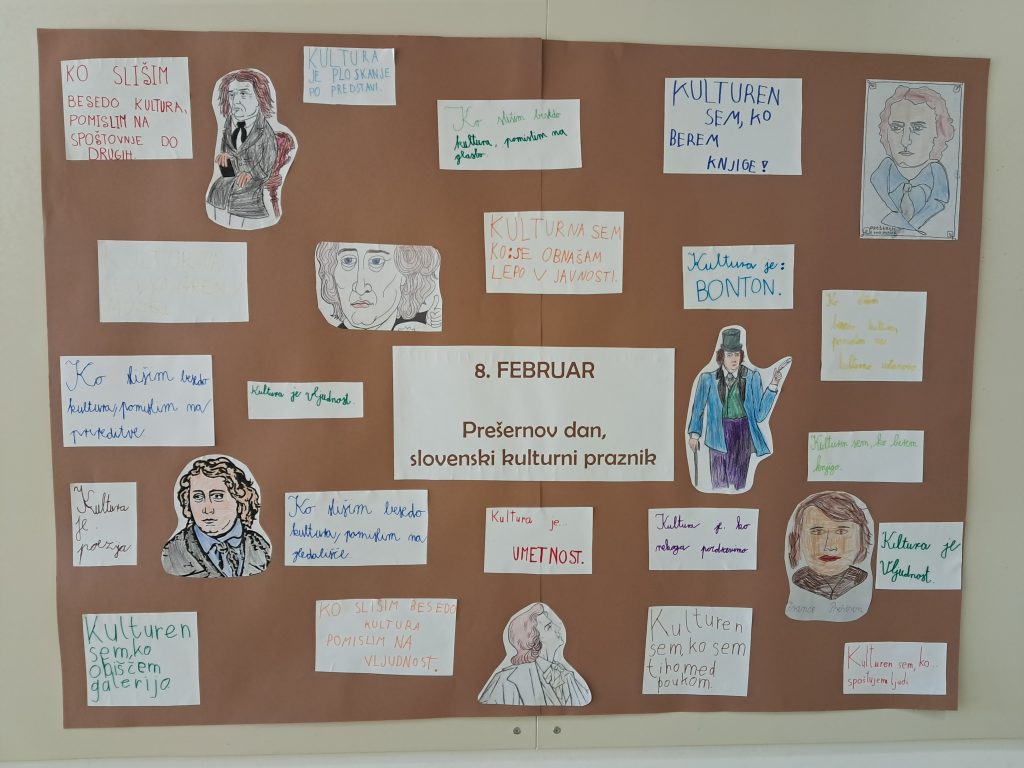 KO SLIŠIM
BESEDO KULTURA,
POMISLIM NA
SPOŠTOVNJE DO
DRUGIH
KULTURA
JE PLOSKANJE
PO PREDSTAVI.
Ko slišim besedo
kultura, pomislim na
glasbo.
KULTUREN
SEM, KO
BEREM
KNJIGE!
KULTURNA SEM
KO:SE OBNAŠAM
LEPO V JAVNOSTI.
Kultura je:
BONTON.
Ko slišim
besedo kultura,
pomislim na
kulturno ustanovo
Ko slišim besedo
kultura, pomislim na
prireditve.
Kultura je vljudnost.
8. FEBRUAR
Prešernov dan,
slovenski kulturni praznik
Kulturen sem, ko berem
knjigo.
Kultura
je:
poezija
Ko slišim besedo
kultura, pomislim na
gledališče.
Kultura je...
UMETNOST.
Kultura je, ko
nekoga pozdravimo
France Prešeren
Kultura je
Vljudnost.
Kulturen
sem, ko
obiščem
galerijo
KO SLIŠIM BESEDO
KULTURA
POMISLIM NA
VLJUDNOST.
Kulturen
sem, ko sem
tiho med
poukom.
Kulturen sem, ko...
spoštujem ljudi.